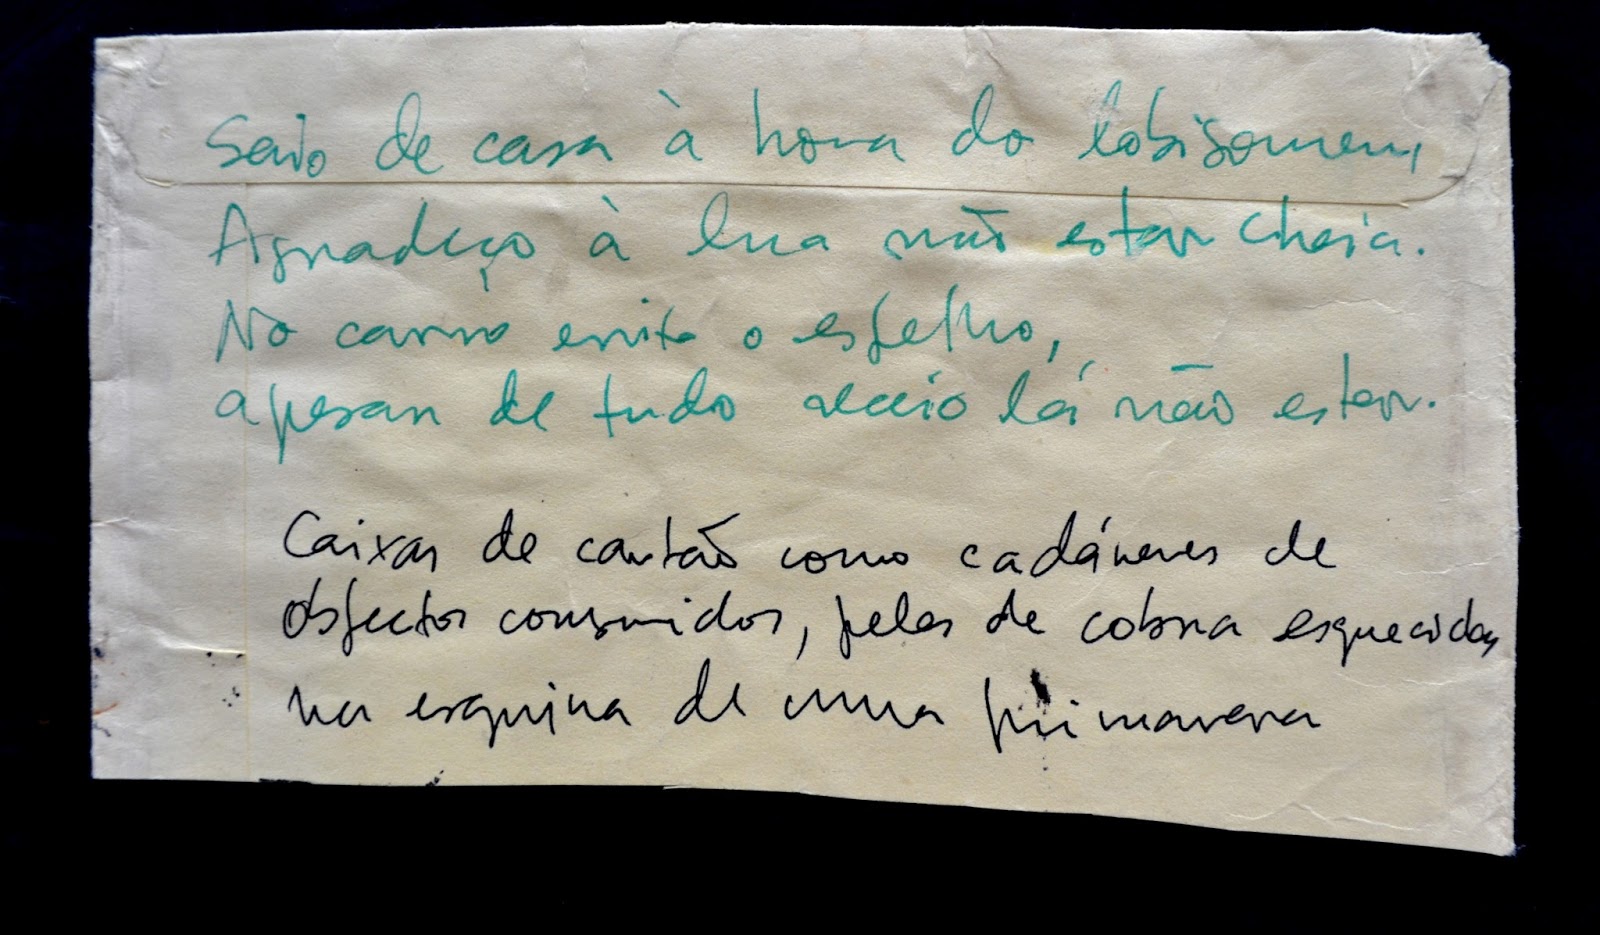 Saio de casa à hora do lobisomem,
Agradeço à lua não estar cheia.
No carro evito o espelho,
apesar de tudo receio lá não estar.
Caixas de cartão como cadáveres de
objectos consumidos, peles de cobra esquecidas
na esquina de uma primavera